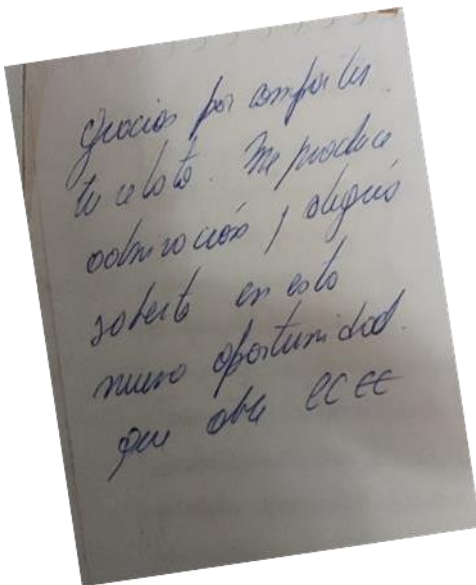 Gracias por compartir
tu relato. Me produce
admiración y alegría
saberte en esta
nueva oportunidad
que abre CCEE